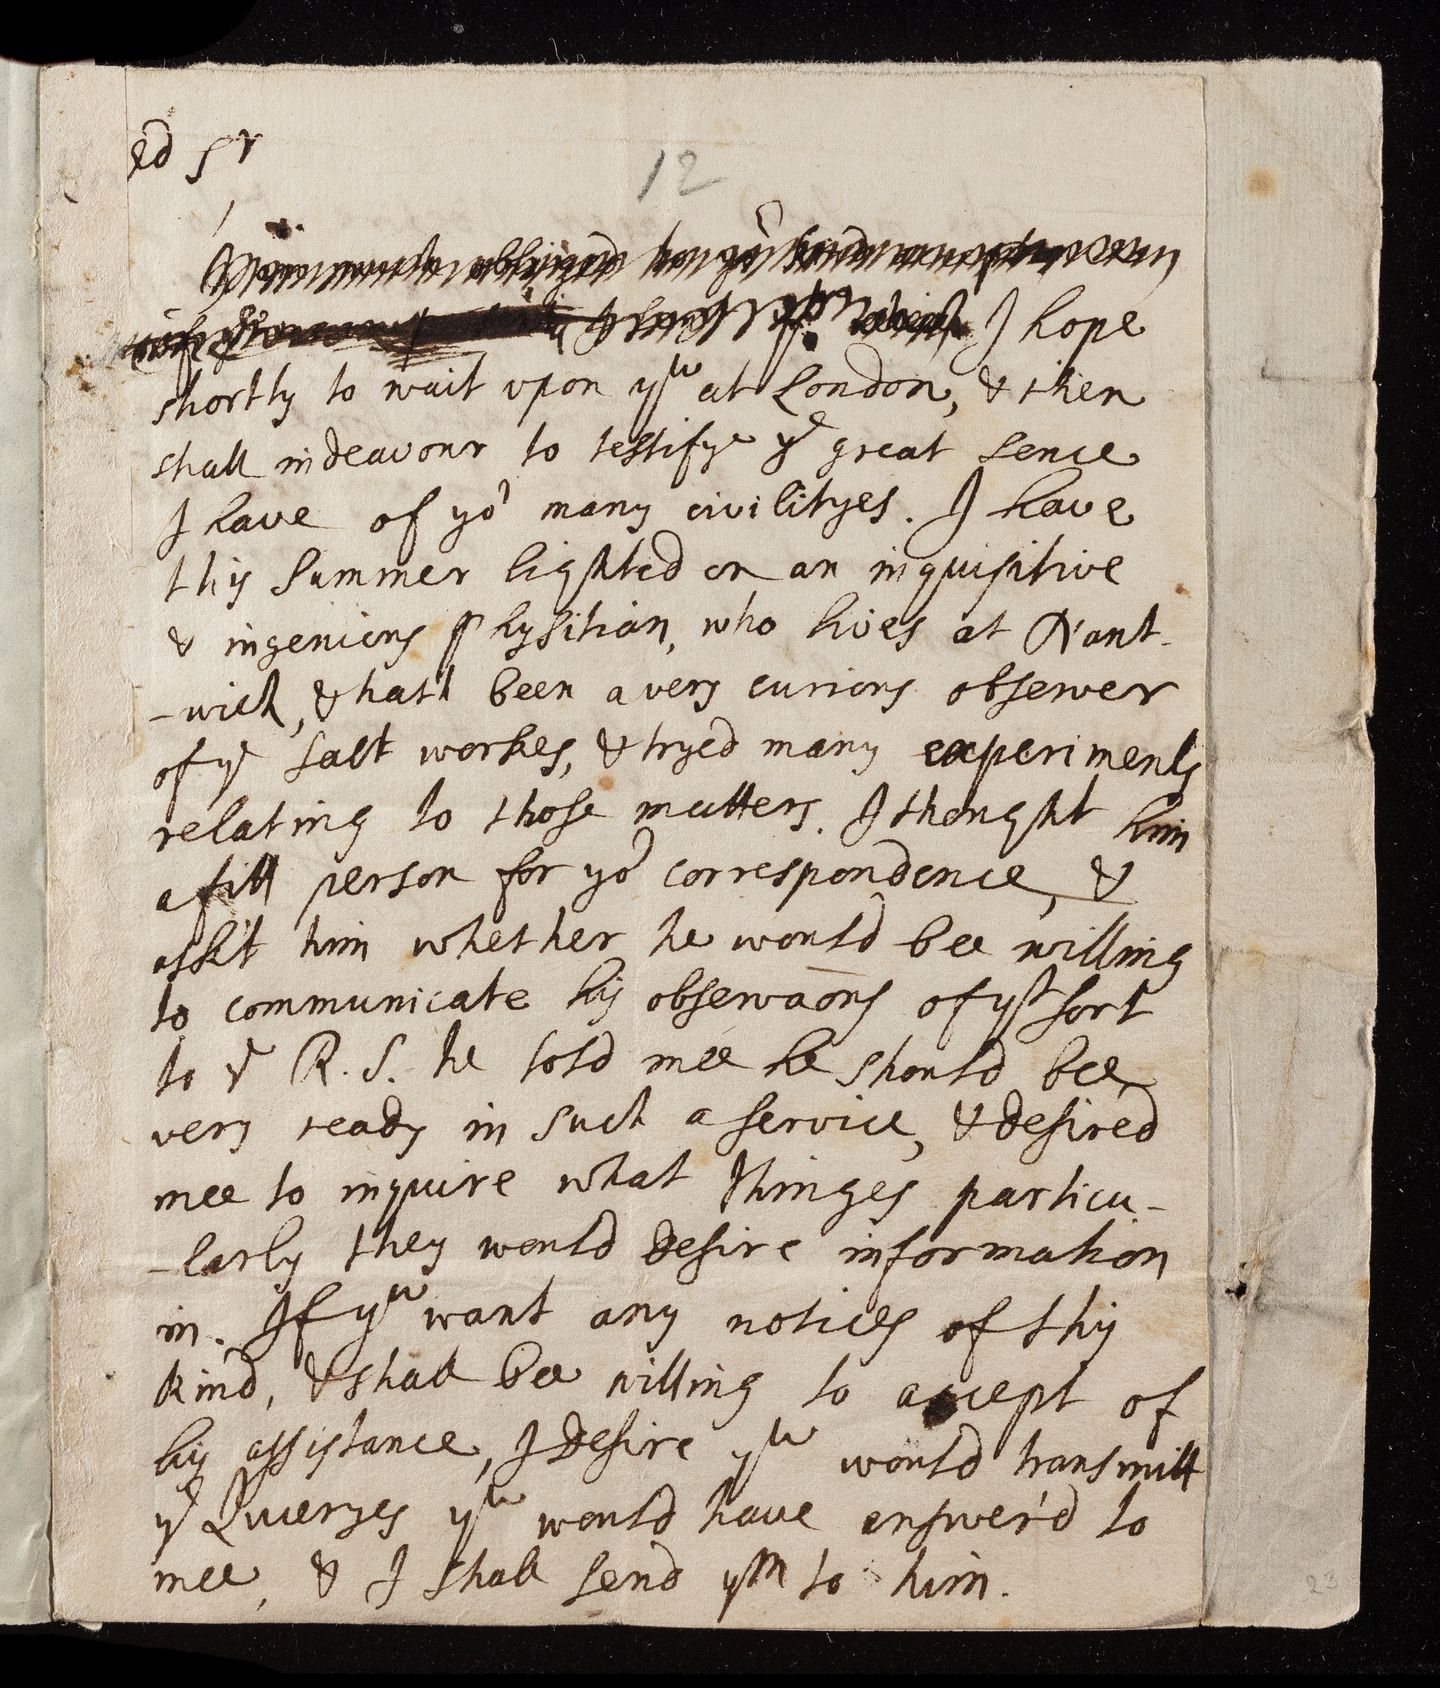 ed Sr
12
I hope
shortly to wait upon yu at London, & then
shall indeavour to testifye ye great sence
I have of yor many civilityes. I have
this Summer lighted on an inquisitive
& ingenious Physitian, who lives at Nant-
-wich, & hath been a very curious observer
of ye salt workes, & tryed many experiments
relating to those matters. I thought him
a fitt person for yor correspondence, &
askt him whether he would bee willing
to communicate his observaons of yt sort
to ye R. S. he told mee he should bee
very ready in such a service, & desired
mee to inquire what thinges particu-
-larly they would desire information
in. If yu want any notices of this
kind, & shall bee willing to accept of
his assistance, I desire yu would transmitt
ye Quieryes yu would have answer'd to
mee, & I shall send ym to him.
23